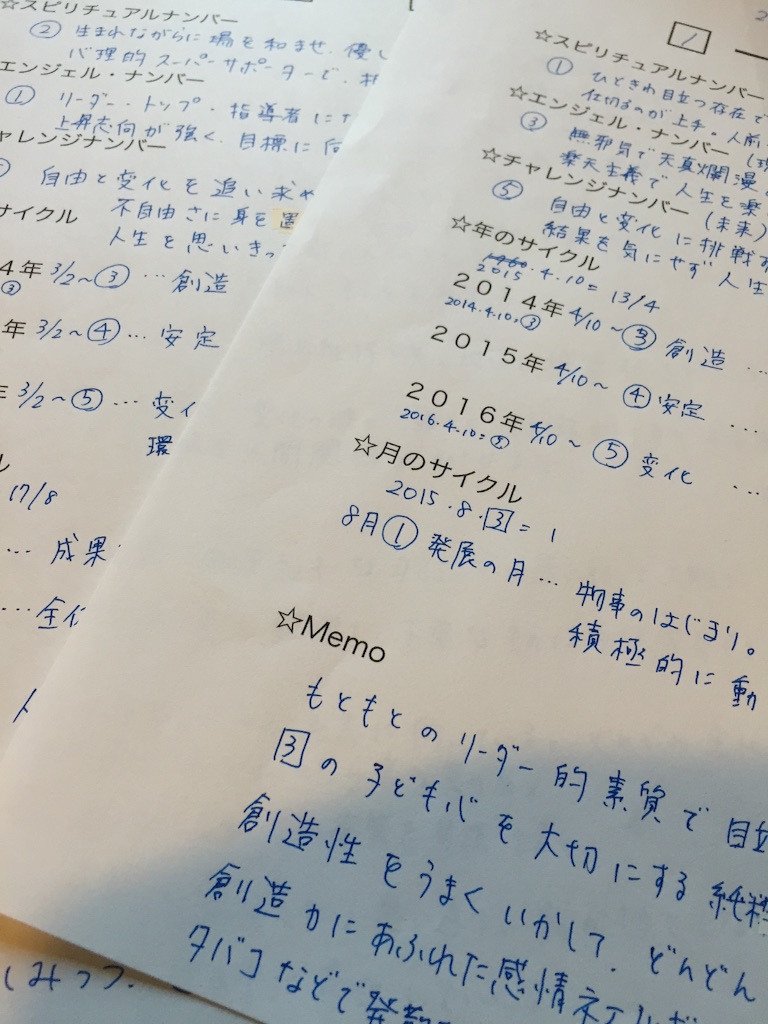 ☆スピリチュアルナンバー
② 生まれながらに場を和ませ、優し
心理的スーパーサポーターで、
エンジェル・ナンバー
① リーダー・トップ・指導者に
上昇志向が強く、目標に向
ャレンジナンバー
自由と変化を追い求め
不自由さに身を置
人生を思いきっ
サイクル
4年 3/2~③ … 創造
③
年 3/2~④ … 安定
年 3/2~⑤ … 変化
環
ル
17/8
… 成果
… 全
しみっつ.
1
☆スピリチュアルナンバー
① ひときわ目立つ存在で
仕切るのが上手。人前
☆エンジェル・ナンバー
③ 無邪気で天真爛漫
楽天主義で人生を楽
☆チャレンジナンバー (未来)
⑤ 自由と変化に挑戦す
結果を気にせず人生
☆年のサイクル
2015・4・10= 13/4
2014年 4/10~③ 創造 …
2014.4.10=③
2015年 4/10~ ④ 安定 …
2016年 4/10~ ⑤ 変化 …
2016.4.10=⑤
☆月のサイクル
2015・8・3 = 1
8月① 発展の月 … 物事のはじまり。
積極的に動
☆Memo
もともとのリーダー的素質で目立
3の子ども心を大切にする純粋
創造性をうまくいかして、どんどん
創造力にあふれた感情
タバコなどで発散